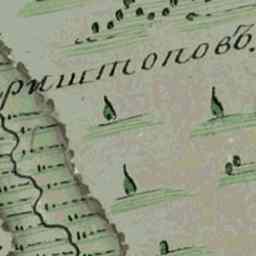 риштоповъ.